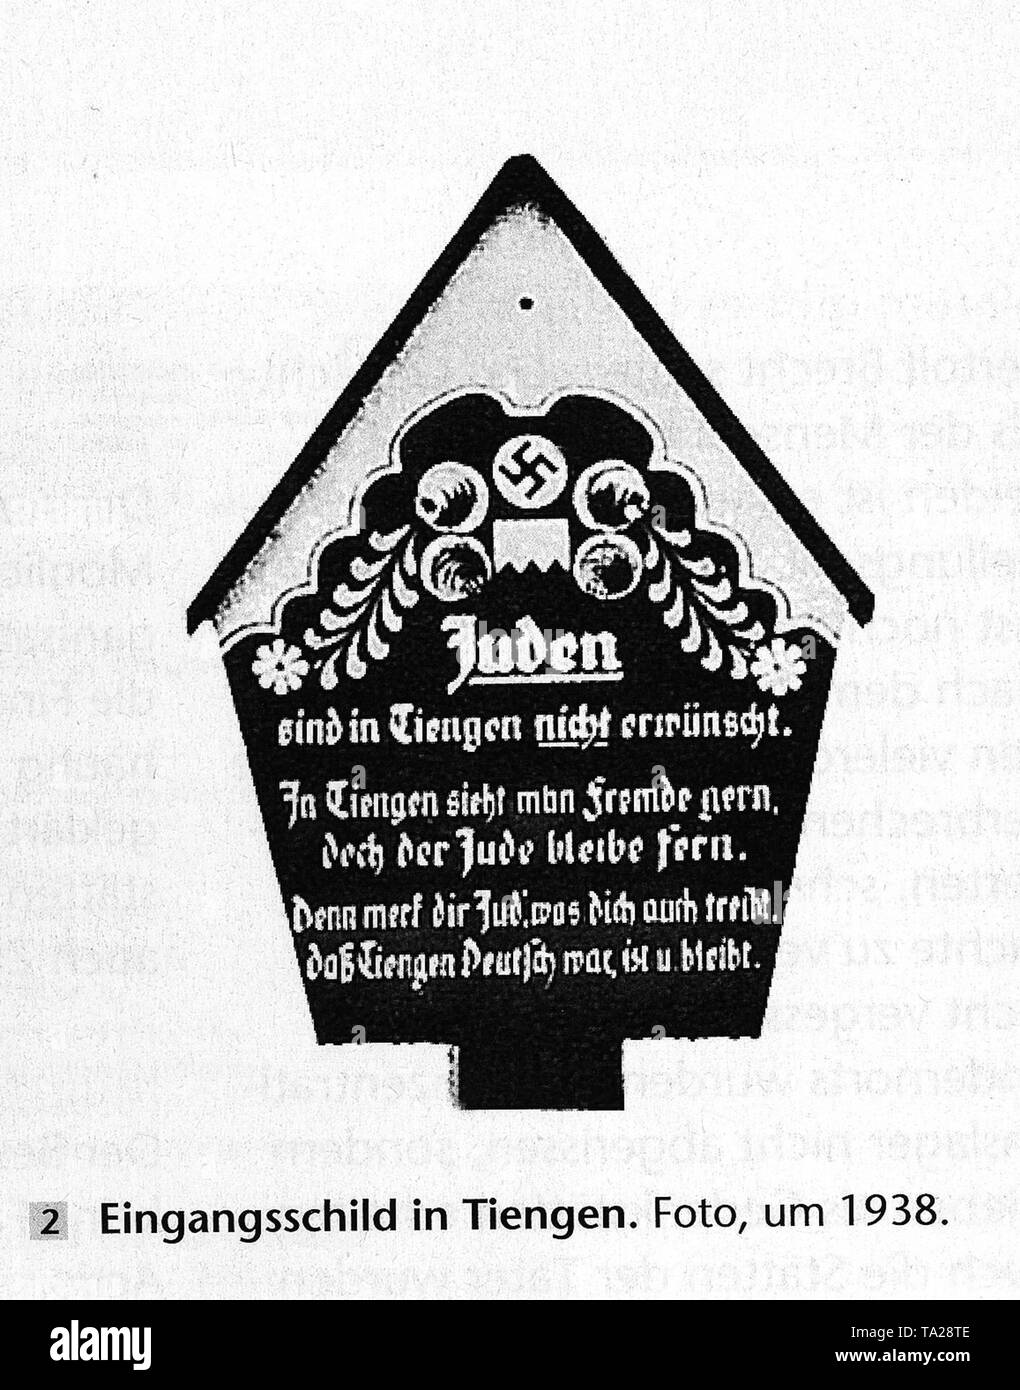 Juden
sind in Tiengen nicht erwünscht.
In Tiengen sieht man Fremde gern,
doch der Jude bleibe fern.
Denn merk dir Jud', was dich auch treibt,
daß Tiengen Deutsch war, ist u. bleibt.
2 Eingangsschild in Tiengen. Foto, um 1938.
alamy
Image ID: TA28TE
www.alamy.com